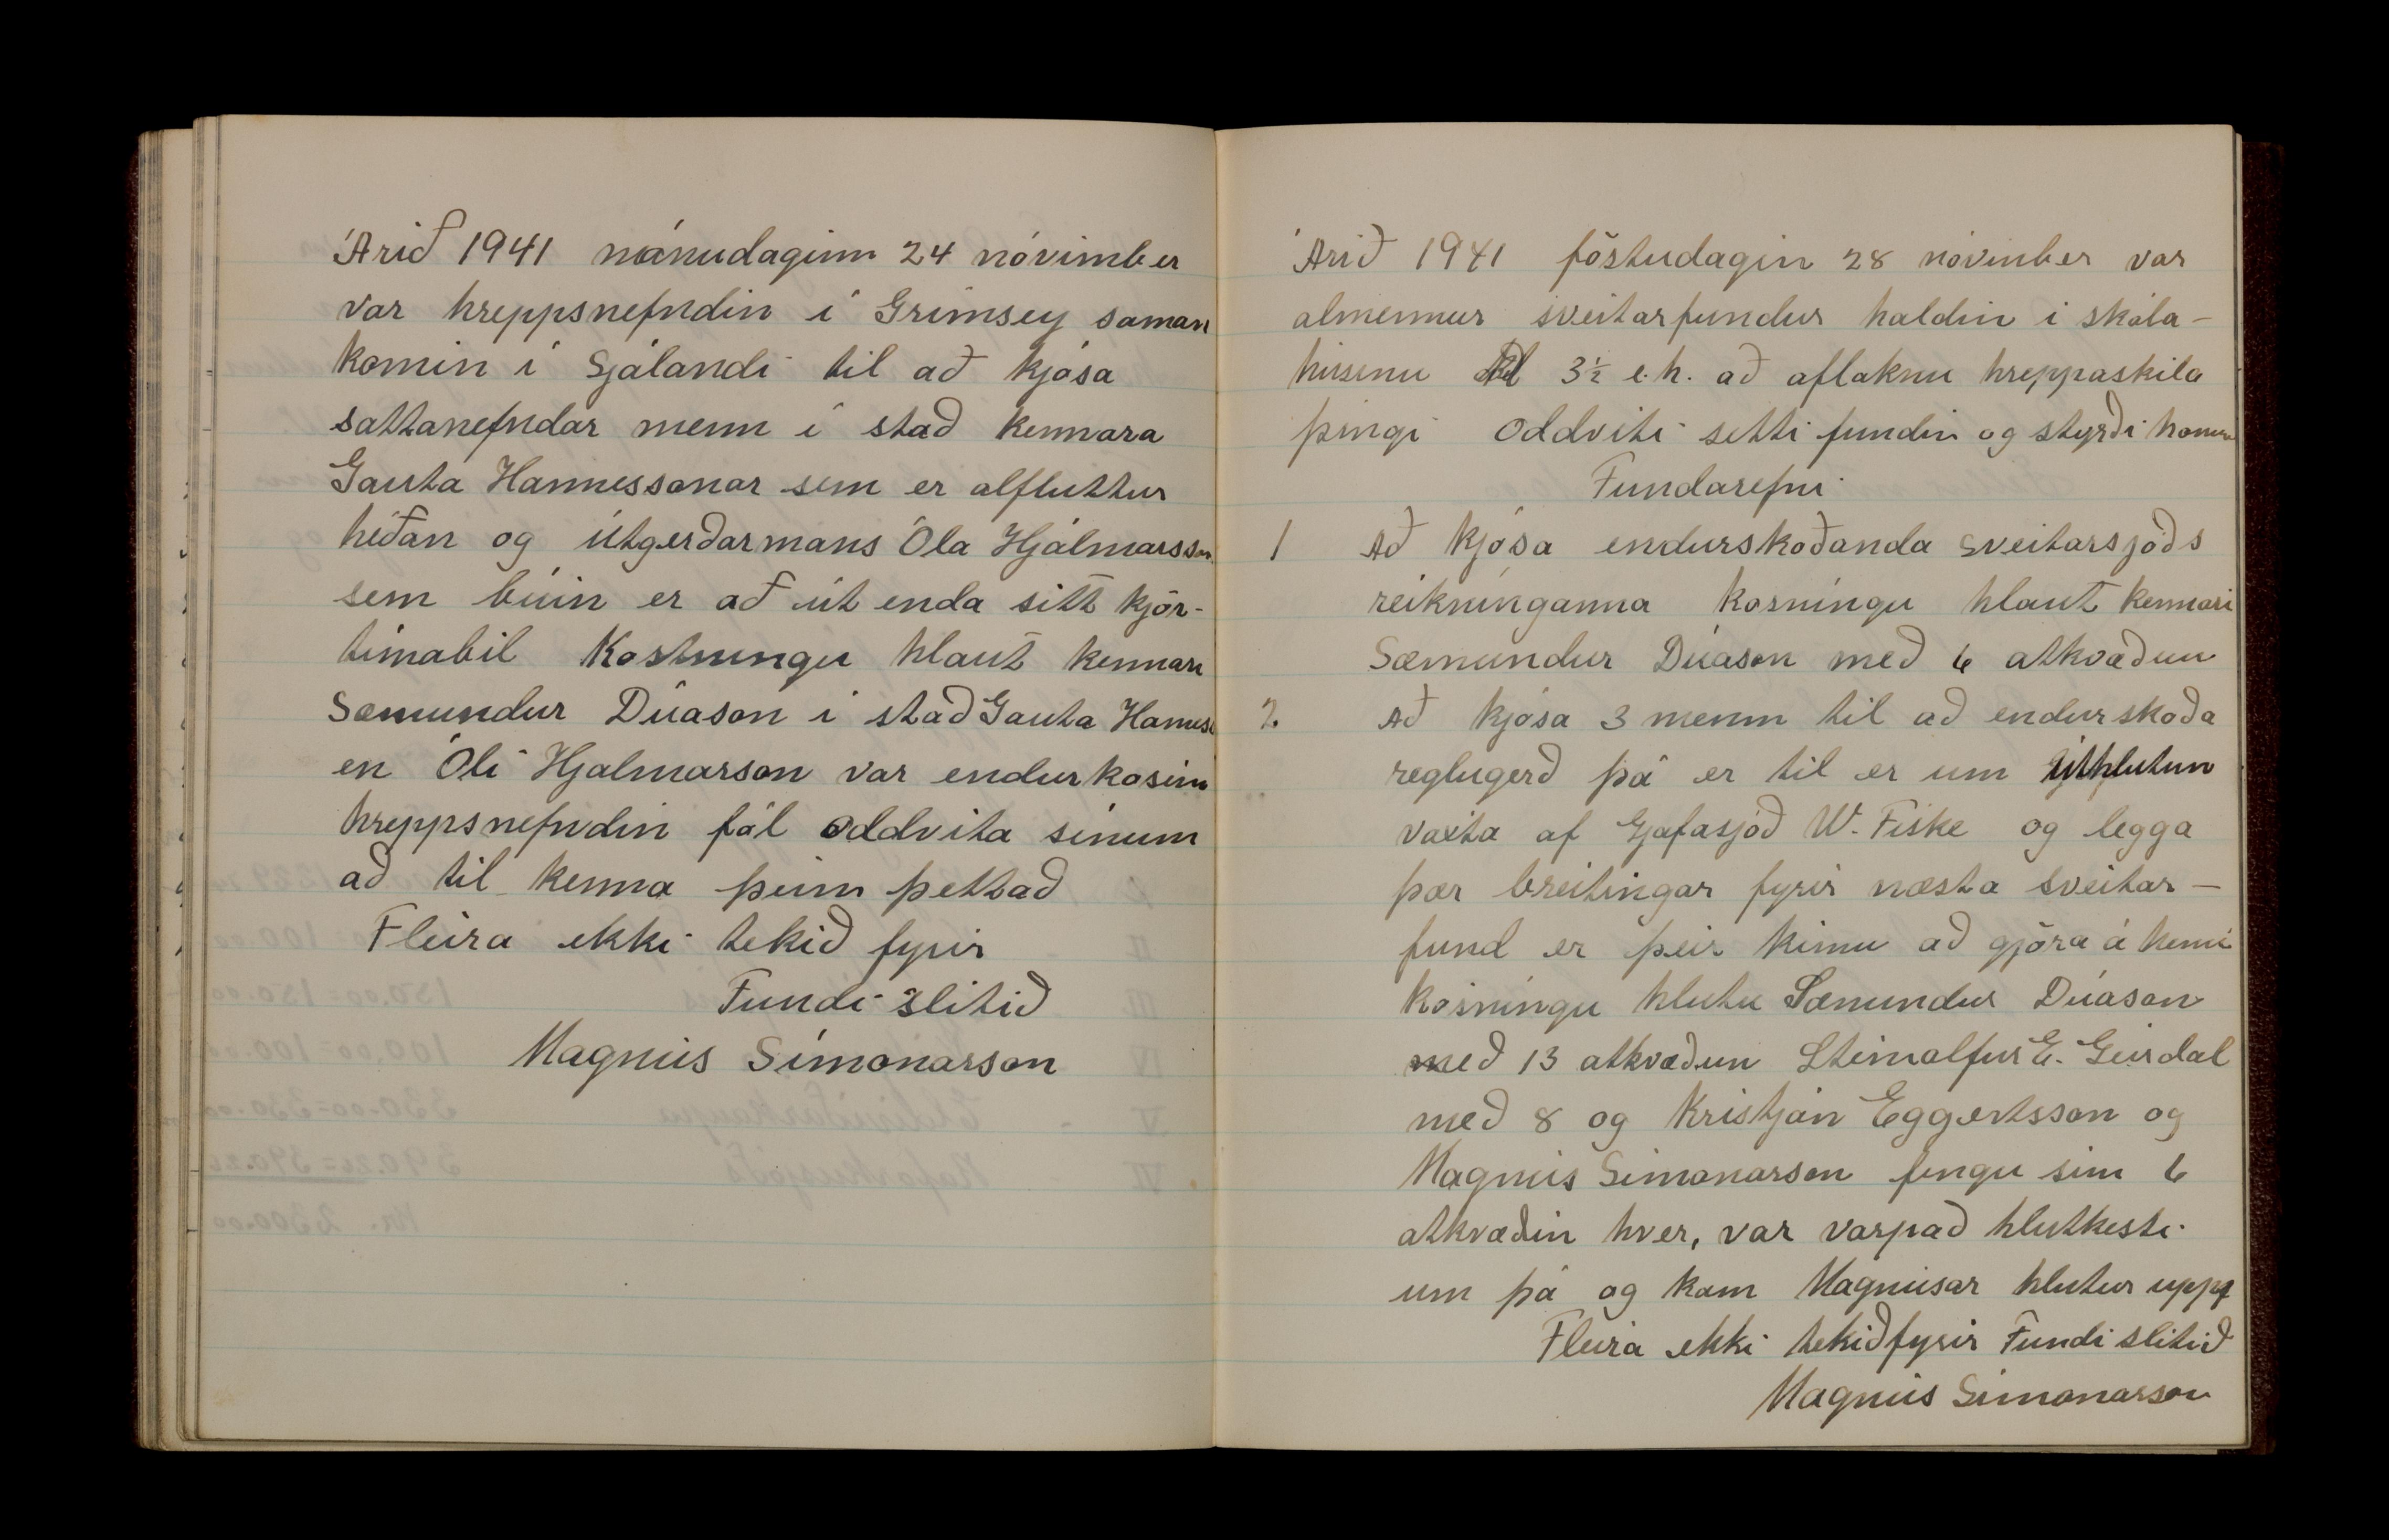 Árið 1941 mánudaginn 24 nóvimber
var hreppsnefndin í Grímsey saman
komin í Sjálandi til að kjósa
sattanefndar menn í stað kennara
Gauta Hannessonar sem er alfluttur
héðan og útgerðarmans Óla Hjálmarsson
sem búin er að út enda sitt kjör-
tímabil Kostningu hlaut kennari
Sæmundur Dúason í stað Gauta Hanness
en Óli Hjalmarson var endurkosinn
hreppsnefndin fól oddvita sínum
að til kenna þeim þettað
Fleira ekki tekið fyrir
Fundi slitið
Magnús Símonarson
Árið 1941 föstudagin 28 nóvinber var
almennur sveitarfundur haldin i skóla-
húsinu Kl 3½ e.h. að aflaknu hreppaskila
þingi Oddviti setti fundin og styrði honum
Fundarefni
1 Að kjósa endurskoðanda sveitarsjóðs
reikninganna kosningu hlaut kennari
Sæmundur Dúason með 6 atkvæðun
2 Að kjósa 3 menn til að endurskoða
reglugerð þá er til er um úthlutun
vaxta af Gjafasjóð W. Fiske og legga
þær breitingar fyrir næsta sveitar-
fund er þeir kinnu að gjöra á henni
kosningu hlutu Sæmundur Dúason
með 13 atkvæðun Steinolfur E. Geirdal
með 8 og Kristján Eggertsson og
Magnús Simonarson fengu sin 6
atkvæðin hver, var varpað hlutkesti
um þá og kom Magnúsar hlutur upp
Fleira ekki tekið fyrir Fundi slitið
Magnús Símonarson